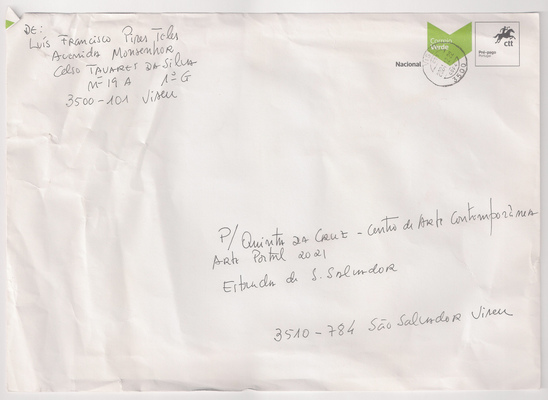 DE:
Luís Francisco Pires Teles
Avenida Monsenhor
Celso Tavares da Silva
Nº 19 A 1º G
3500-101 Viseu
Correio
Verde
Nacional
Pré-pago
Portugal
ctt
3500
P/ Quinta da Cruz - Centro de Arte Contemporânea
Arte Postal 2021
Estrada de S. Salvador
3510-784 São Salvador Viseu